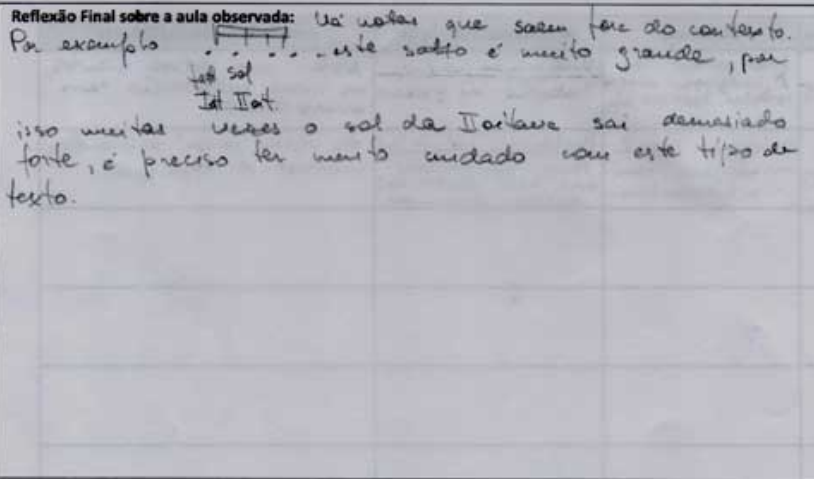 Reflexão Final sobre a aula observada: Há notas que saem fora do contexto.
Por exemplo . . . . . este salto é muito grande, por
fa# sol
Iat IIoit
isso muitas vezes o sol da II oitava sai demasiado
forte, é preciso ter muito cuidado com este tipo de
texto.